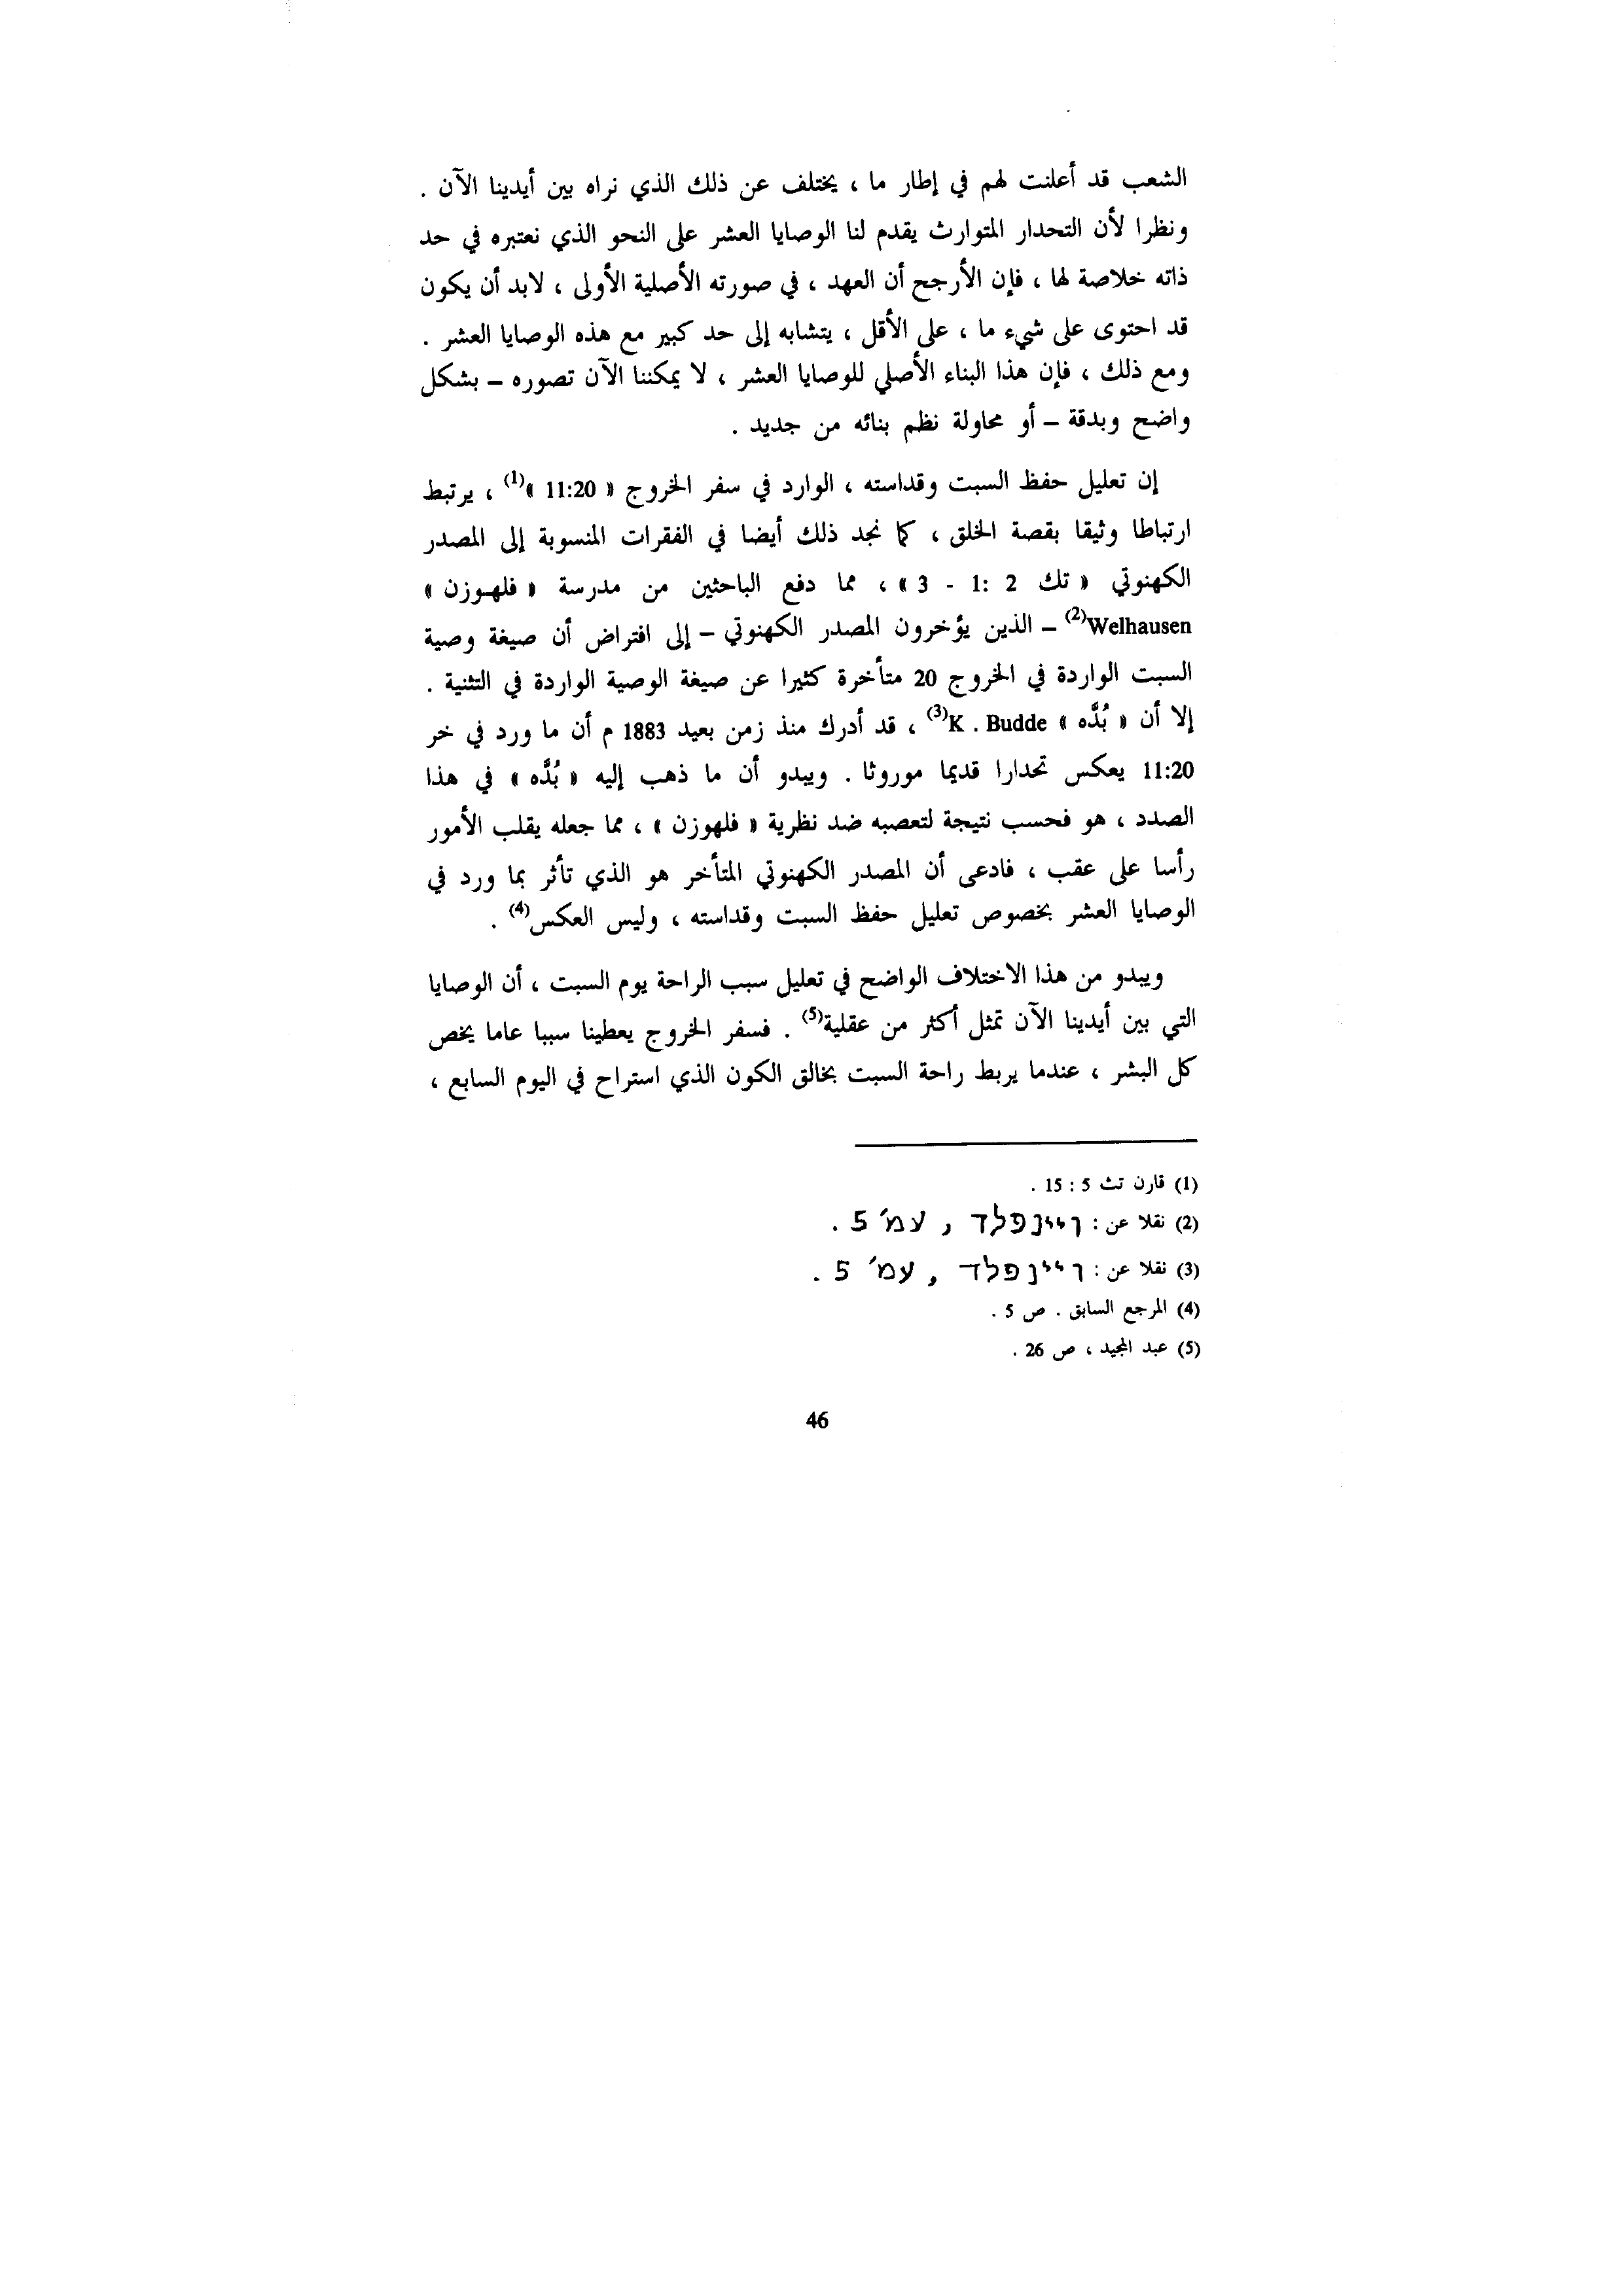 الشعب قد أعلنت لهم في إطار ما ، يختلف عن ذلك الذي نراه بين أيدينا الآن .
ونظرا لأن التحدار المتوارث يقدم لنا الوصايا العشر على النحو الذي نعتبره في حد
ذاته خلاصة لها ، فإن الأرجح أن العهد ، في صورته الأصلية الأولى ، لابد أن يكون
قد احتوى على شيء ما ، على الأقل ، يتشابه إلى حد كبير مع هذه الوصايا العشر .
ومع ذلك ، فإن هذا البناء الأصلي للوصايا العشر ، لا يمكننا الآن تصوره – بشكل
واضح وبدقة – أو محاولة نظم بنائه من جديد .
إن تعليل حفظ السبت وقداسته ، الوارد في سفر الخروج « 11:20 »(1) ، يرتبط
ارتباطا وثيقا بقصة الخلق ، كما نجد ذلك أيضا في الفقرات المنسوبة إلى المصدر
الكهنوتي « تك 2 :1 - 3 » ، مما دفع الباحثين من مدرسة « فلهوزن »
Welhausen(2) – الذين يؤخرون المصدر الكهنوتي – إلى افتراض أن صيغة وصية
السبت الواردة في الخروج 20 متأخرة كثيرا عن صيغة الوصية الواردة في التثنية .
إلا أن « بُدَّه » K . Budde(3) ، قد أدرك منذ زمن بعيد 1883 م أن ما ورد في خر
11:20 يعكس تحدارا قديما موروثا . ويبدو أن ما ذهب إليه « بُدَّه » في هذا
الصدد ، هو فحسب نتيجة لتعصبه ضد نظرية « فلهوزن » ، مما جعله يقلب الأمور
رأسا على عقب ، فادعى أن المصدر الكهنوتي المتأخر هو الذي تأثر بما ورد في
الوصايا العشر بخصوص تعليل حفظ السبت وقداسته ، وليس العكس(4) .
ويبدو من هذا الاختلاف الواضح في تعليل سبب الراحة يوم السبت ، أن الوصايا
التي بين أيدينا الآن تمثل أكثر من عقلية(5) . فسفر الخروج يعطينا سببا عاما يخص
كل البشر ، عندما يربط راحة السبت بخالق الكون الذي استراح في اليوم السابع ،
(1) قارن تث 5 : 15 .
(2) نقلا عن : ויינפלד , עמ׳ 5 .
(3) نقلا عن : ויינפלד , עמ׳ 5 .
(4) المرجع السابق . ص 5 .
(5) عبد المجيد ، ص 26 .
46